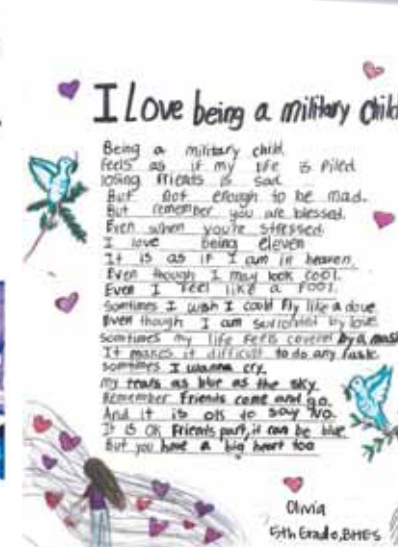 I Love being a military child
Being a military child
feels as if my life is piled.
losing friends is sad
But not enough to be mad.
But remember you are blessed.
Even when you're stressed.
I love being eleven
It is as if I am in heaven.
Even though I may look cool.
Even I feel like a fool.
Somtimes I wish I could fly like a dove
Even though I am surronted by love
Somtimes my life feels covered by a mask
It makes it difficult to do any task.
somtimes I wanna cry.
my tears as blue as the sky.
Remember Friends come and go.
And it is ok to say No.
It is OK Friends part, it can be blue
But you have a big heart too
Olivia
5th Grade, BHES